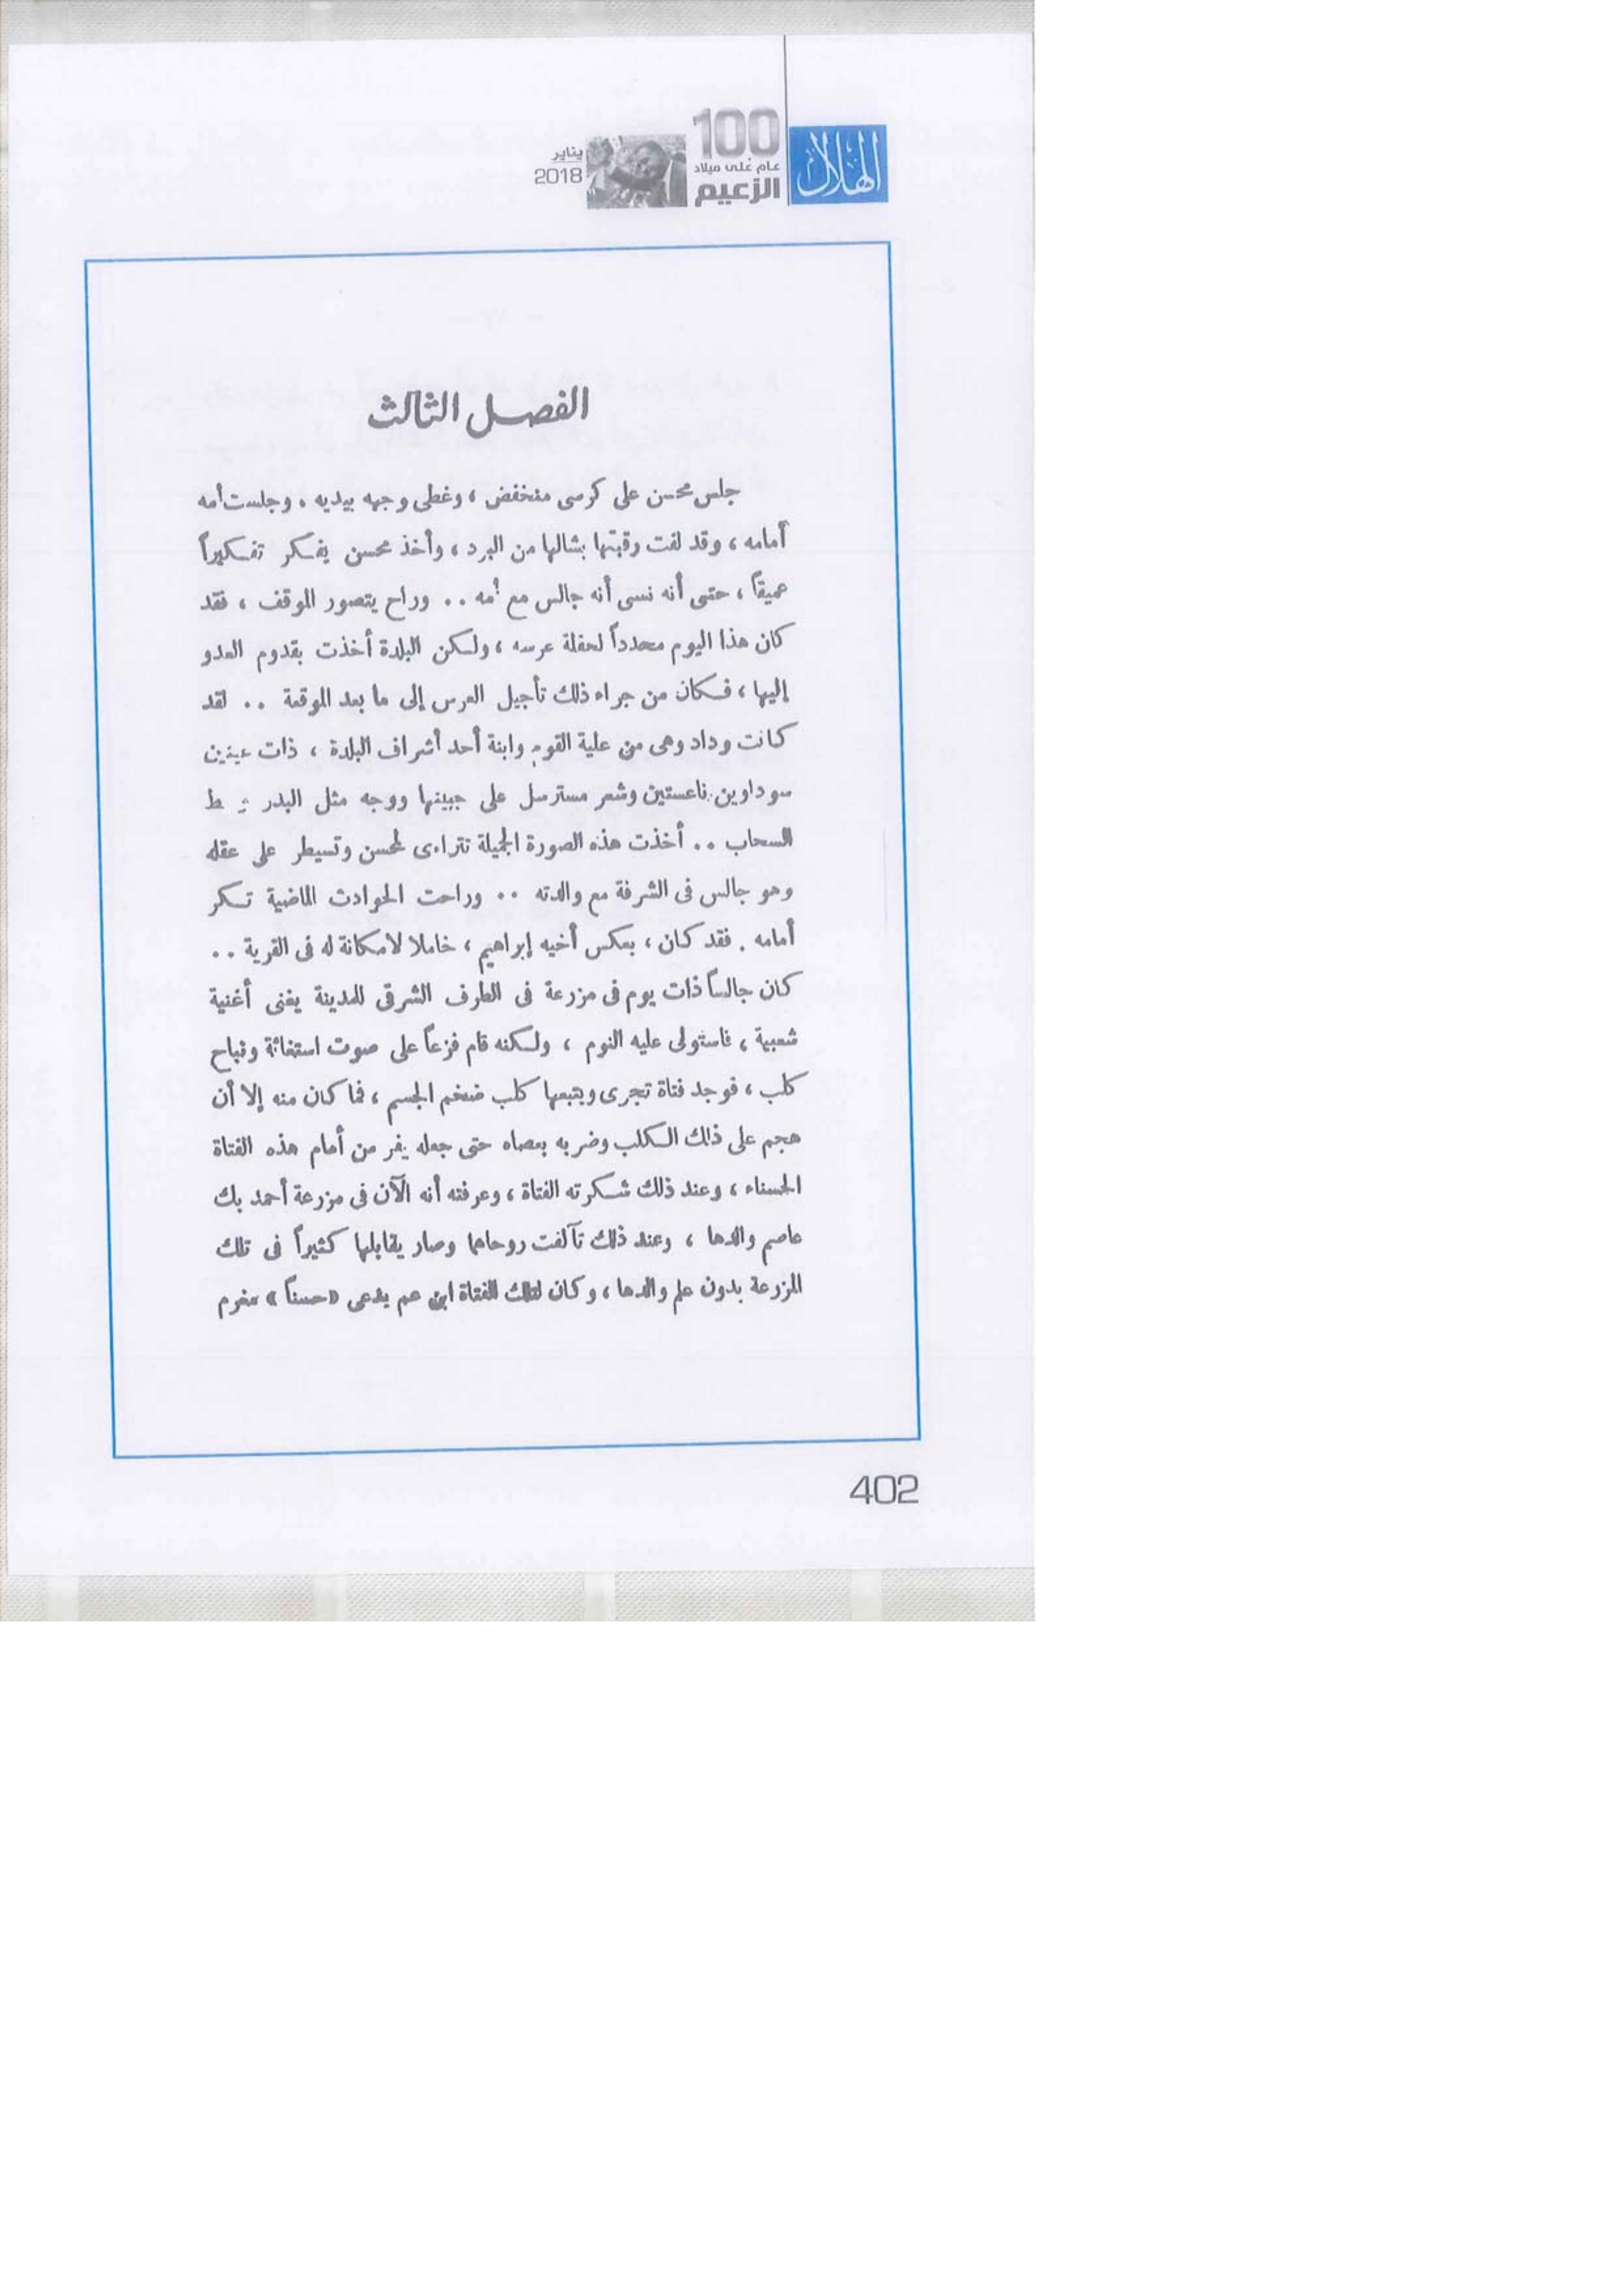 الهلال
100
عام على ميلاد
الزعيم
يناير
2018
الفصل الثالث
جلس محسن على كرسى منخفض ، وغطى وجهه بيديه . وجلست أمه
أمامه ، وقد لفت رقبتها بشالها من البرد ، وأخذ محسن يفكر تفكيراً
عميقاً ، حتى أنه نسى أنه جالس مع أمه .. وراح يتصور الموقف ، فقد
كان هذا اليوم محدداً لحفلة عرسه ، ولكن البلدة أخذت بقدوم العدو
إليها ، فكان من جراء ذلك تأجيل العرس إلى ما بعد الموقعة .. لقد
كانت وداد وهى من علية القوم وابنة أحد أشراف البلدة ، ذات عينين
سوداوين ناعستين وشعر مسترسل على جبينها ووجه مثل البدر
السحاب .. أخذت هذه الصورة الجميلة تتراءى لمحسن وتسيطر على عقله
وهو جالس فى الشرفة مع والدته .. وراحت الحوادث الماضية تكر
أمامه . فقد كان ، بعكس أخيه إبراهيم ، خاملا لا مكانة له فى القرية ..
كان جالساً ذات يوم فى مزرعة فى الطرف الشرقى للمدينة يغنى أغنية
شعبية ، فاستولى عليه النوم ، ولكنه قام فزعاً على صوت استغاثة ونباح
كلب ، فوجد فتاة تجرى ويتبعها كلب ضخم الجسم ، فما كان منه إلا أن
هجم على ذلك الكلب وضربه بعصاه حتى جعله يفر من أمام هذه الفتاة
الحسناء ، وعند ذلك شكرته الفتاة ، وعرفته أنه الآن فى مزرعة أحمد بك
عاصم والدها ، وعند ذلك تآلفت روحاهما وصار يقابلها كثيراً فى تلك
المزرعة بدون علم والدها ، وكان لتلك الفتاة ابن عم يدعى «حسناً» مغرم
402